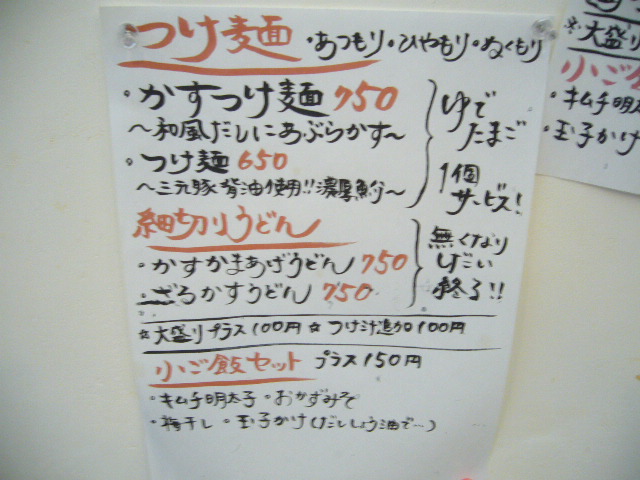 つけ麺 ・あつもり・ひやもり・ぬくもり
・かすつけ麺 750
〜和風だしにあぶらかす〜
・つけ麺 650
〜三元豚背油使用!!濃厚魚介〜
ゆで
たまご
1個
サービス!
細切りうどん
・かすかまあげうどん 750
・ざるかすうどん 750
無くなり
しだい
終了!!
☆大盛りプラス100円 ☆つけ汁追加100円
小ご飯セット プラス150円
・キムチ明太子 ・おかずみそ
・梅干し ・玉子かけ(だししょう油で…)
※大盛り
小ご
・キムチ明太
・玉子かけ